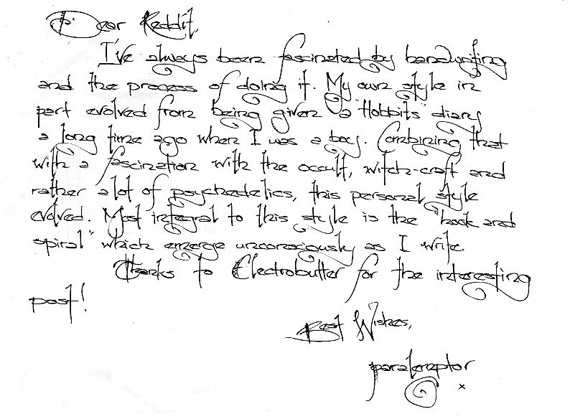 Dear Reddit,
I've always been fascineted by handwriting
and the process of doing it. My own style in
part evolved from being given a "Hobbits" diary
a long time ago when I was a boy. Combining that
with a fascination with the occult, witch-craft and
rather alot of psychedelics, this personal style
evolved. Most integral to this style is the "hook and
spiral" which emerge unconsciously as I write.
Thanks to Electrobutter for the interesting
post!
Best Wishes,
x